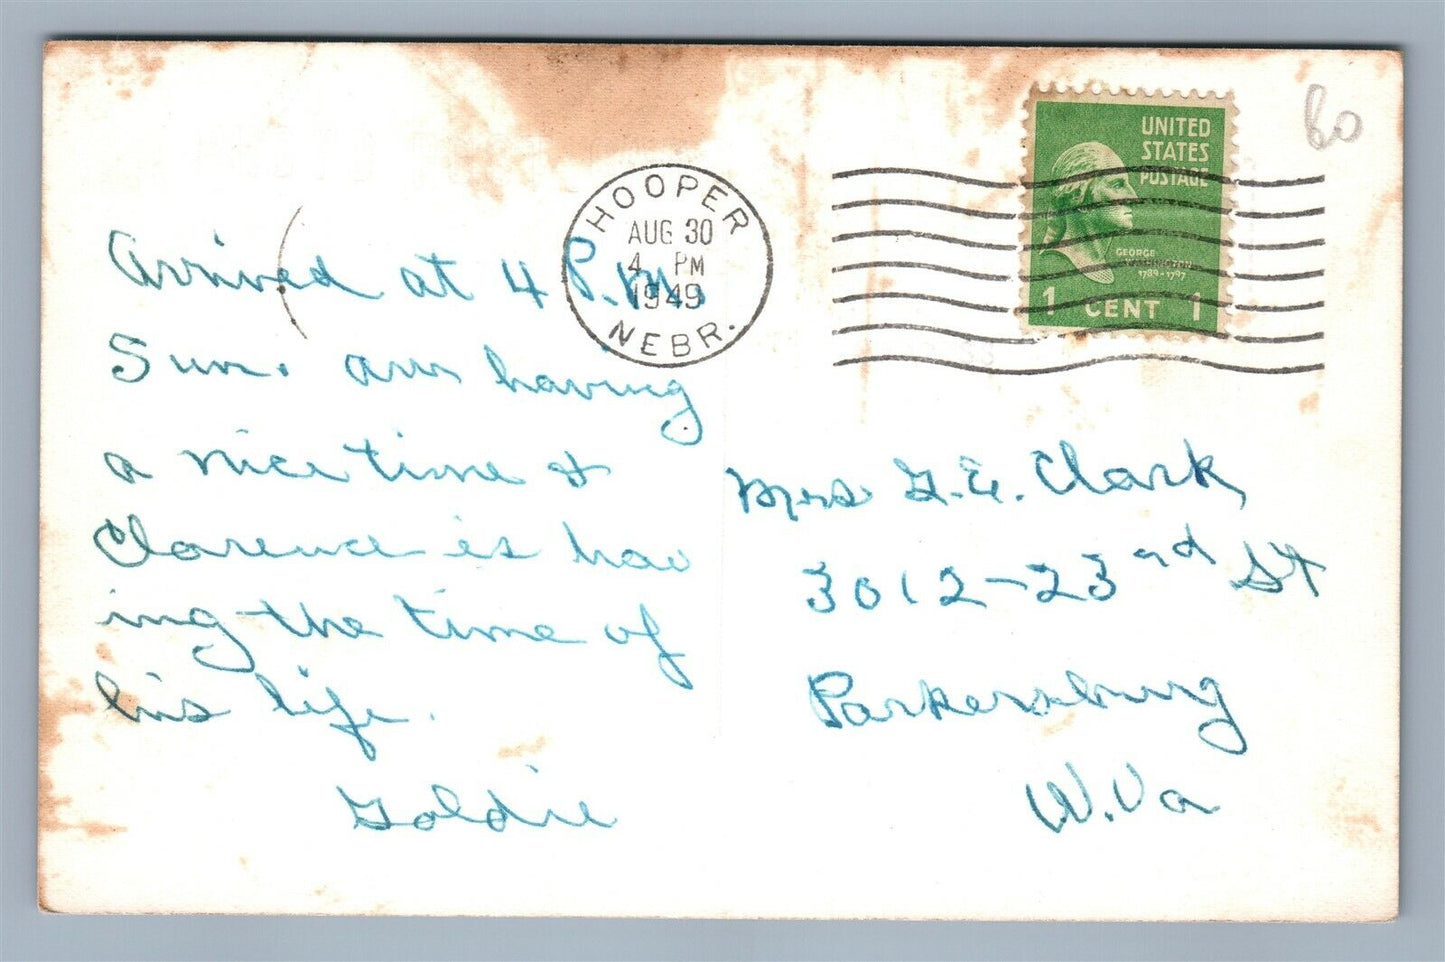 HOOPER
AUG 30
4 PM
1949
NEBR.
UNITED
STATES
POSTAGE
GEORGE
WASHINGTON
1789-1797
1 CENT 1
60
Arrived at 4 P.M.
Sun. am having
a nice time &
Clarence is hav
ing the time of
his life.
Goldie
Mrs G. E. Clark,
3012-23rd St
Parkersburg
W. Va